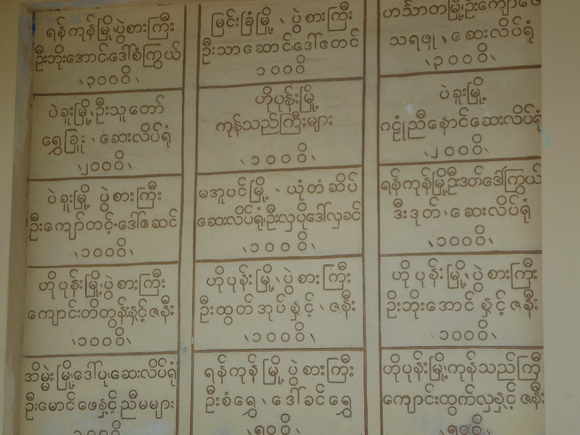 ရန်ကုန်မြို့ပွဲစားကြီး
ဦးဘိုးအောင်ဒေါ်စံကြွယ်
၊၃၀၀ဝိ၊
ပဲခူးမြို့ဦးသူတော်
ရွှေခြူး၊ဆေးလိပ်ရုံ
၊၂၀၀ဝိ၊
ပဲခူးမြို့ ပွဲစားကြီး
ဦးကျော်တင့်၊ဒေါ်ဧဆင်
၊၁၀၀ဝိ၊
ဟိုပုန်းမြို့ပွဲစားကြီး
ကျောင်းတံတွန်းနှင့်ဇနီး
၊၁၀၀ဝိ၊
အိမ္မဲမြို့ဒေါ်ပုဆေးလိပ်ရုံ
ဦးမောင်ဖေနှင့်ညီမများ
မြင်းခြံမြို့၊ပွဲစားကြီး
ဦးသာဆောင်ဒေါ်တေင်
၁၀၀ဝိ
ဟိုပုန်းမြို့
ကုန်သည်ကြီးများ
၊၁၀၀ဝိ၊
မအူပင်မြို့၊ယုံတံဆိပ်
ဆေးလိပ်ရုံဦးလှပိုဒေါ်လှခင်
၊၁၀၀ဝိ၊
ဟိုပုန်းမြို့၊ပွဲစားကြီး
ဦးထွတ်အုပ်နှင့်၊ဇနီး
၊၁၀၀ဝိ၊
ရန်ကုန်မြို့ပွဲစားကြီး
ဦးစံရွှေ၊ဒေါ်ခင်ရွှေ
၊၅၀ဝိ၊
ဟင်္သာတမြို့ဦးကျော်ဇေ
သရဖူ၊ဆေးလိပ်ရုံ
၊၃၀၀ဝိ၊
ပဲခူးမြို့
ဂဠုံညီနောင်ဆေးလိပ်ရုံ
၊၂၀၀ဝိ၊
ရန်ကုန်မြို့ဦးဒတ်ဒေါ်ကြွယ်
ဒီးဒုတ်၊ဆေးလိပ်ရုံ
၊၁၀၀ဝိ၊
ဟိုပုန်းမြို့၊ပွဲစားကြီး
ဦးဘိုးအောင်နှင့်ဇနီး
၊၁၀၀ဝိ၊
ဟိုပုန်းမြို့ကုန်သည်ကြီး
ကျောင်းထွက်လှနှင့်ဇနီး